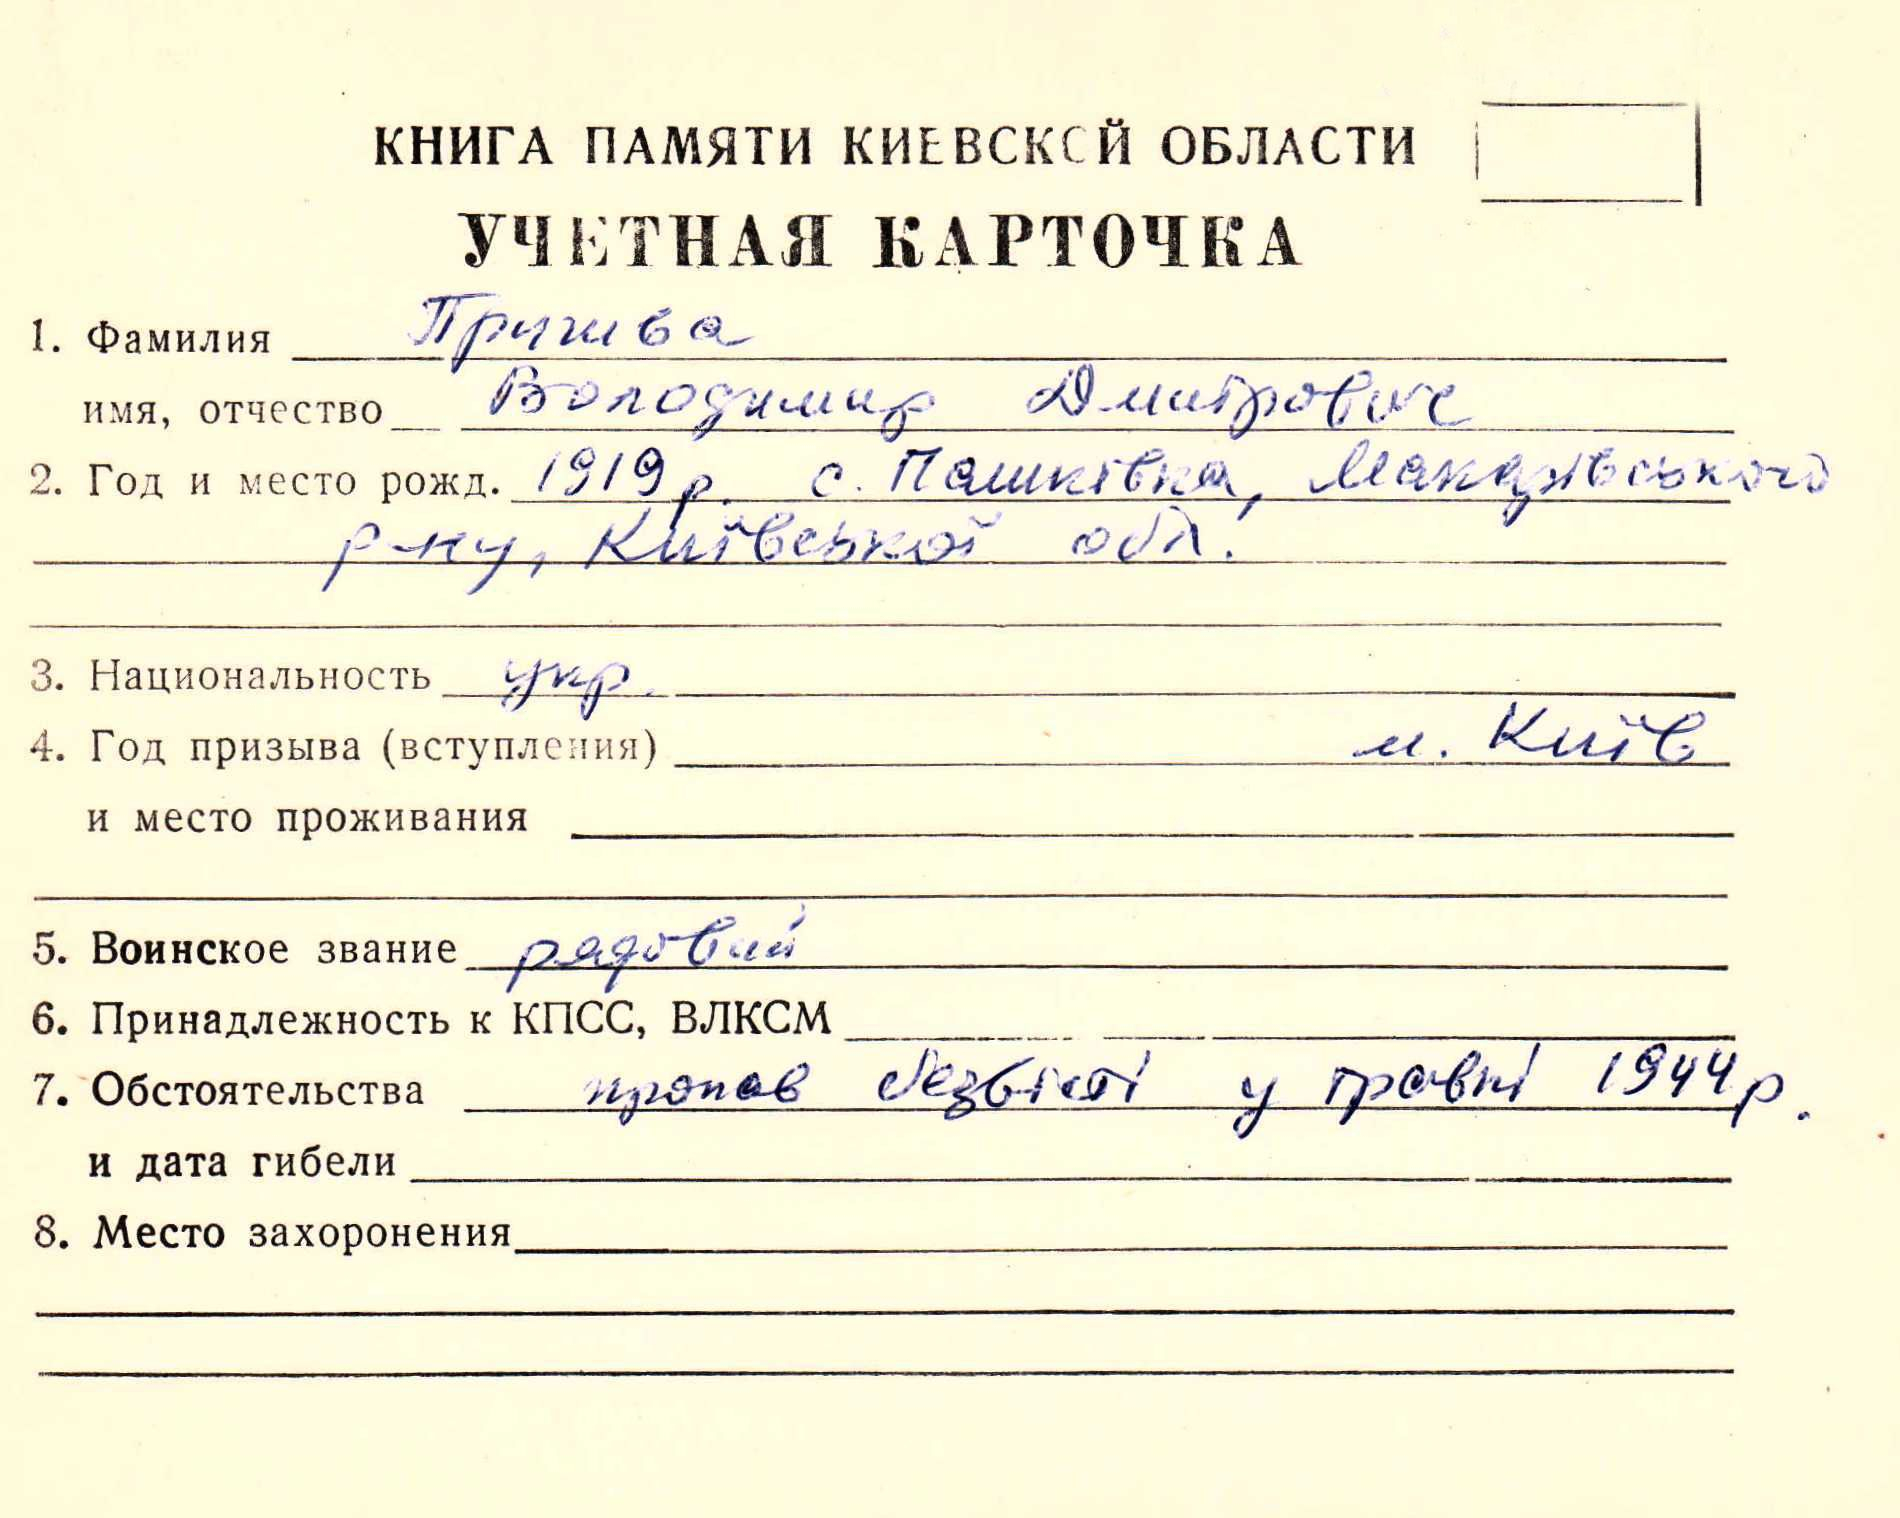 КНИГА ПАМЯТИ КИЕВСКОЙ ОБЛАСТИ
УЧЕТНАЯ КАРТОЧКА
1. Фамилия
имя, отчество Володимир Дмитрович
2. Год и место рожд. 1919 р. с. Пашківка, Макарівського
р-ну, Київської обл.
3. Национальность укр.
4. Год призыва (вступления) м. Київ
и место проживания
5. Воинское звание рядовий
6. Принадлежность к КПСС, ВЛКСМ
7. Обстоятельства пропав безвісті у травні 1944 р.
и дата гибели
8. Место захоронения